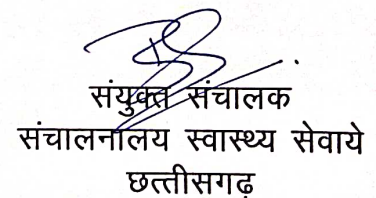 संयुक्त संचालक
संचालनालय स्वास्थ्य सेवाये
छत्तीसगढ़